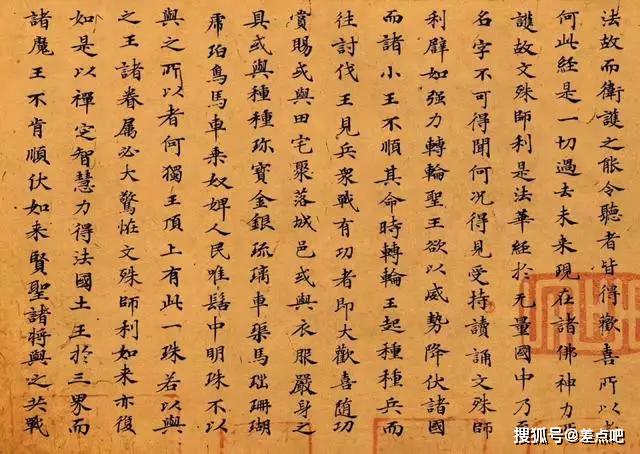 法故而衛護之能令聽者皆得歡喜所以者
何此経是一切過去未来現在諸佛神力所
護故文殊師利是法華経於无量國中乃至
名字不可得聞何况得見受持讀誦文殊師
利辟如强力轉輪聖王欲以威勢降伏諸國
而諸小王不順其命時轉輪王起種種兵而
往討伐王見兵衆戰有功者即大歡喜随功
賞賜或與田宅聚落城邑或與衣服嚴身之
具或與種種珎寶金銀琉璃車渠馬瑙珊瑚
虎珀鳥馬車乗奴婢人民唯髻中明珠不以
與之所以者何獨王頂上有此一珠若以與
之王諸眷属必大驚恠文殊師利如来亦復
如是以禪定智慧力得法國土王於三界而
諸魔王不肯順伏如来賢聖諸將與之共戰
搜狐号@差点吧